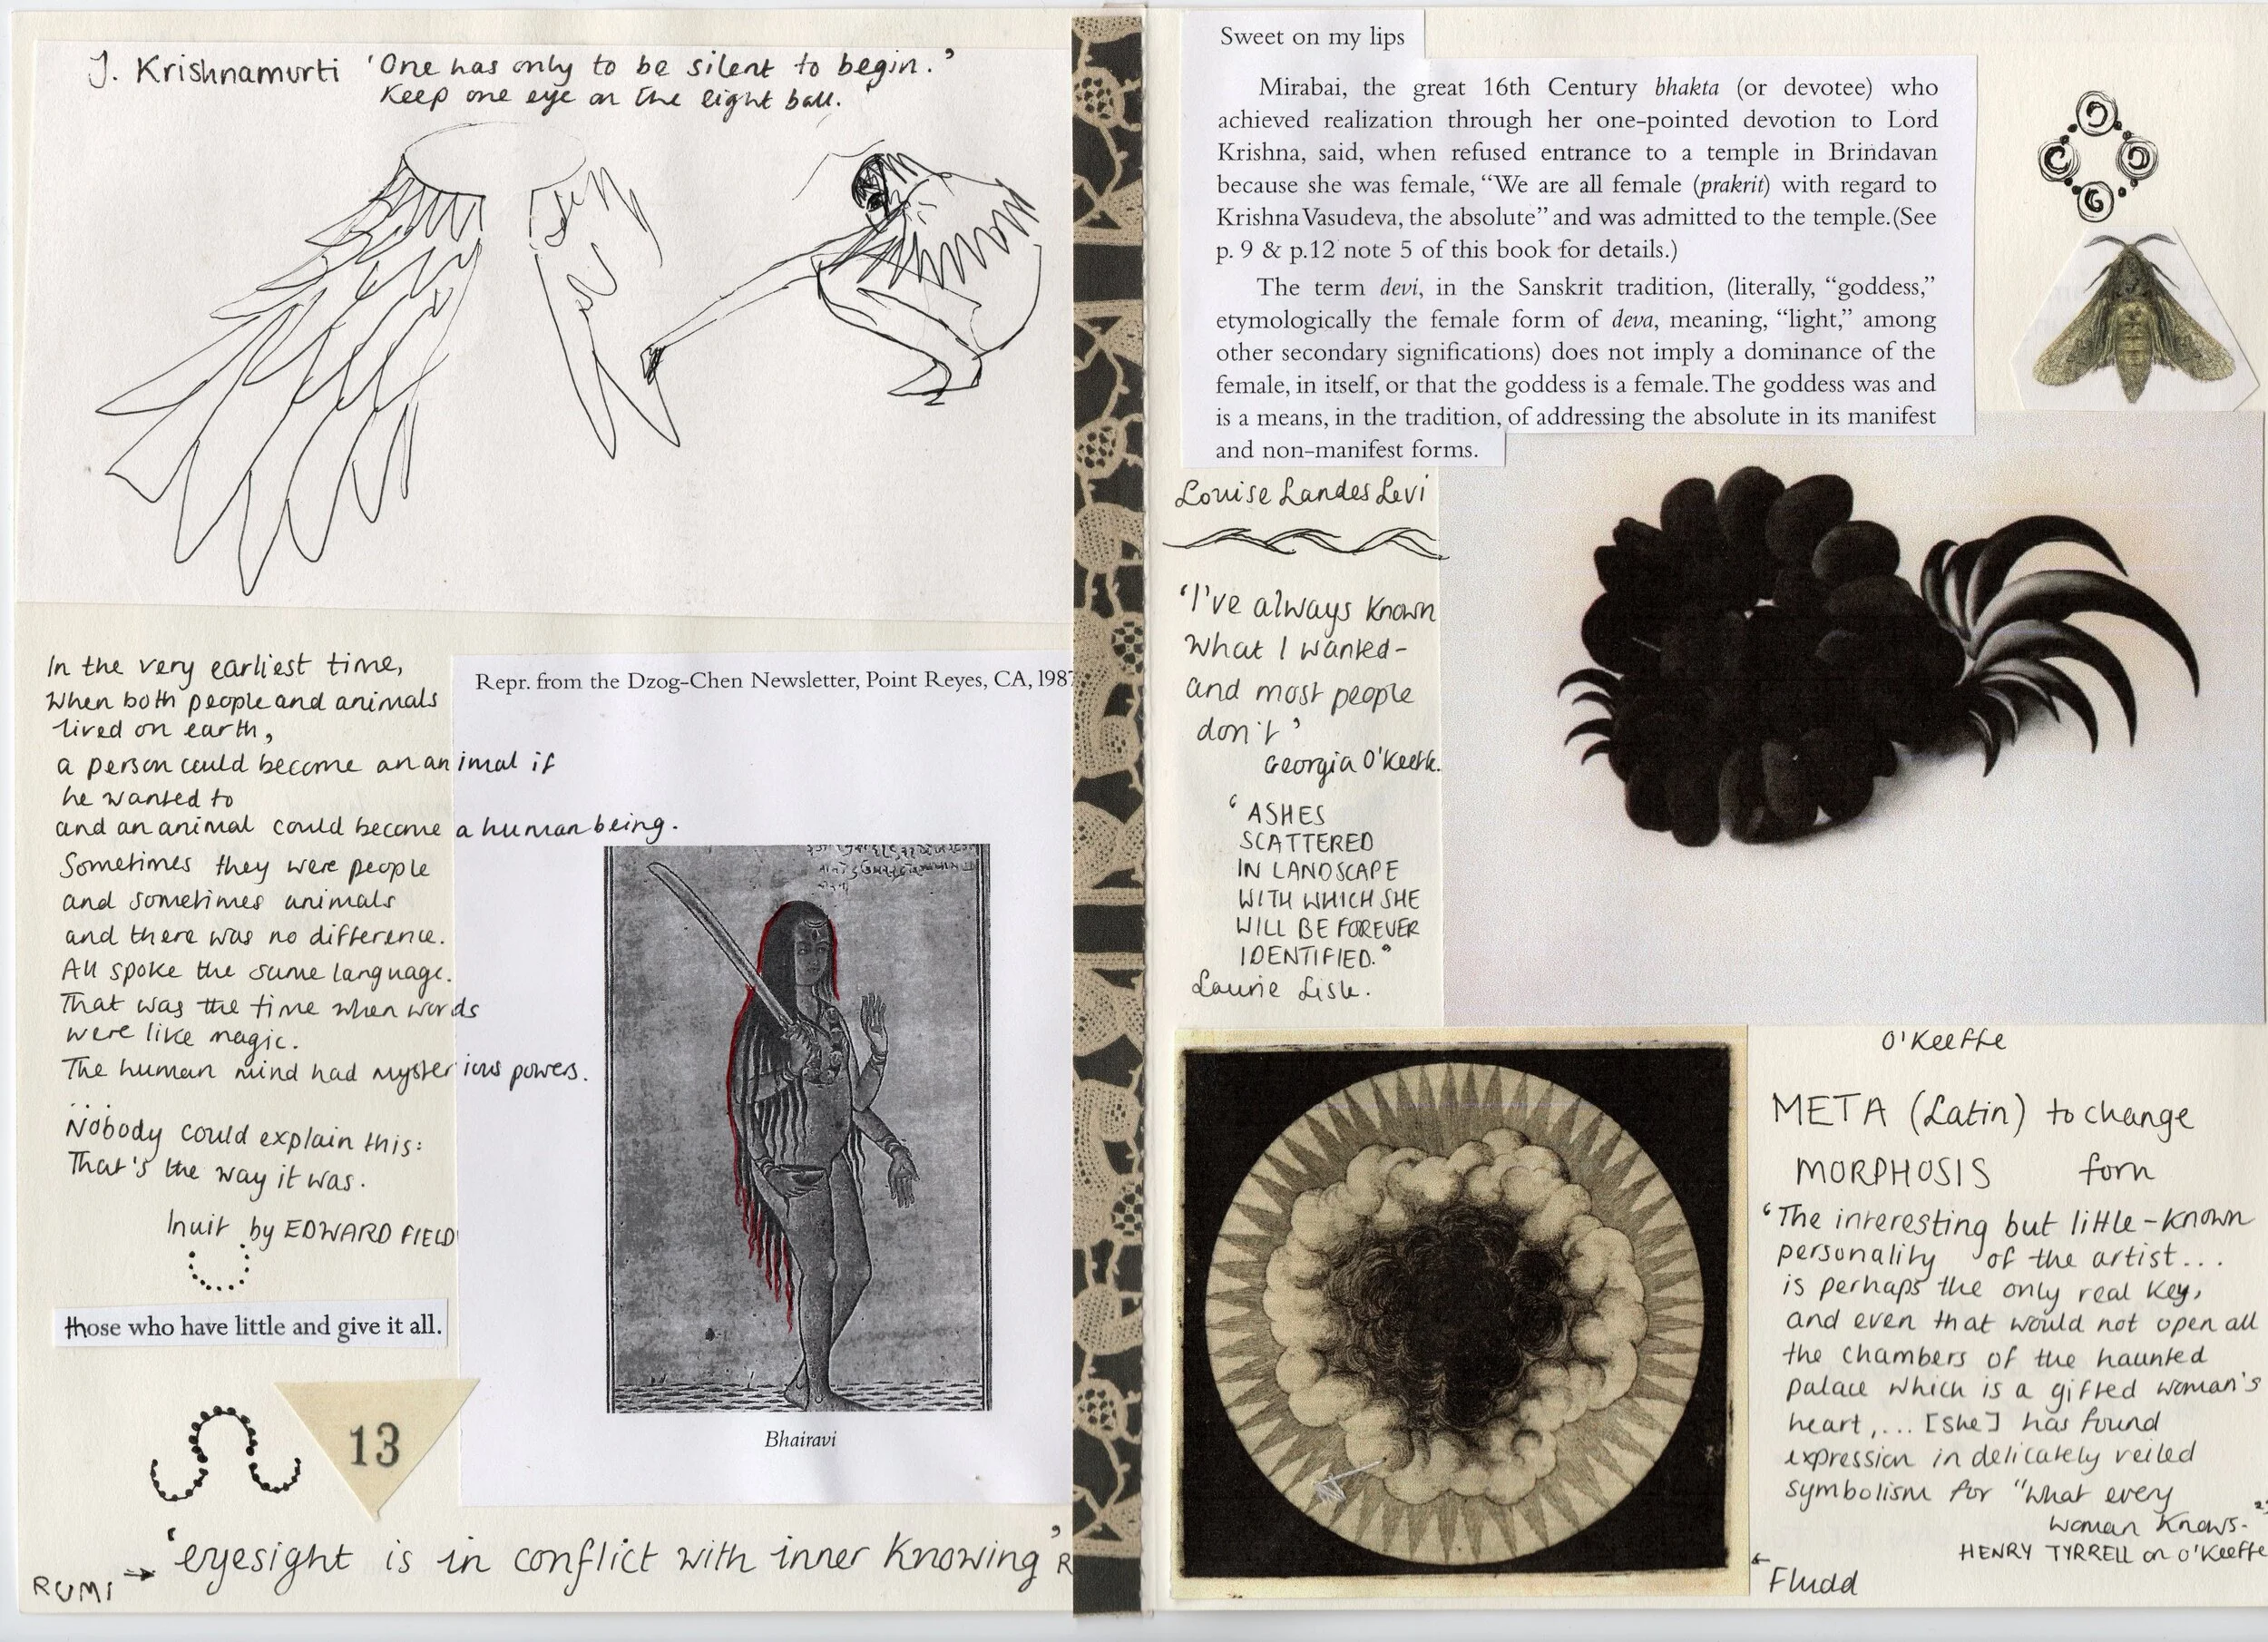 J. Krishnamurti 'One has only to be silent to begin.'
Keep one eye on the light ball.
In the very earliest time,
When both people and animals
lived on earth,
a person could become an animal if
he wanted to
and an animal could become a human being.
Sometimes they were people
and sometimes animals
and there was no difference.
All spoke the same language.
That was the time when words
were like magic.
The human mind had mysterious powers.
Nobody could explain this:
That's the way it was.
Inuit by EDWARD FIELD
those who have little and give it all.
13
Repr. from the Dzog-Chen Newsletter, Point Reyes, CA, 1987
Bhairavi
'eyesight is in conflict with inner knowing' R
RUMI
Sweet on my lips
Mirabai, the great 16th Century bhakta (or devotee) who
achieved realization through her one-pointed devotion to Lord
Krishna, said, when refused entrance to a temple in Brindavan
because she was female, “We are all female (prakrit) with regard to
Krishna Vasudeva, the absolute” and was admitted to the temple.(See
p. 9 & p.12 note 5 of this book for details.)
The term devi, in the Sanskrit tradition, (literally, “goddess,”
etymologically the female form of deva, meaning, “light,” among
other secondary significations) does not imply a dominance of the
female, in itself, or that the goddess is a female. The goddess was and
is a means, in the tradition, of addressing the absolute in its manifest
and non-manifest forms.
Louise Landes Levi
'I've always known
what I wanted-
and most people
don't'
Georgia O'Keeffe.
'ASHES
SCATTERED
IN LANDSCAPE
WITH WHICH SHE
WILL BE FOREVER
IDENTIFIED."
Laurie Lisle.
O'Keeffe
META (Latin) to change
MORPHOSIS form
'The interesting but little-known
personality of the artist...
is perhaps the only real key,
and even that would not open all
the chambers of the haunted
palace which is a gifted woman's
heart,... [she] has found
expression in delicately veiled
symbolism for "what every
woman knows."
HENRY TYRRELL on O'Keeffe
Fludd